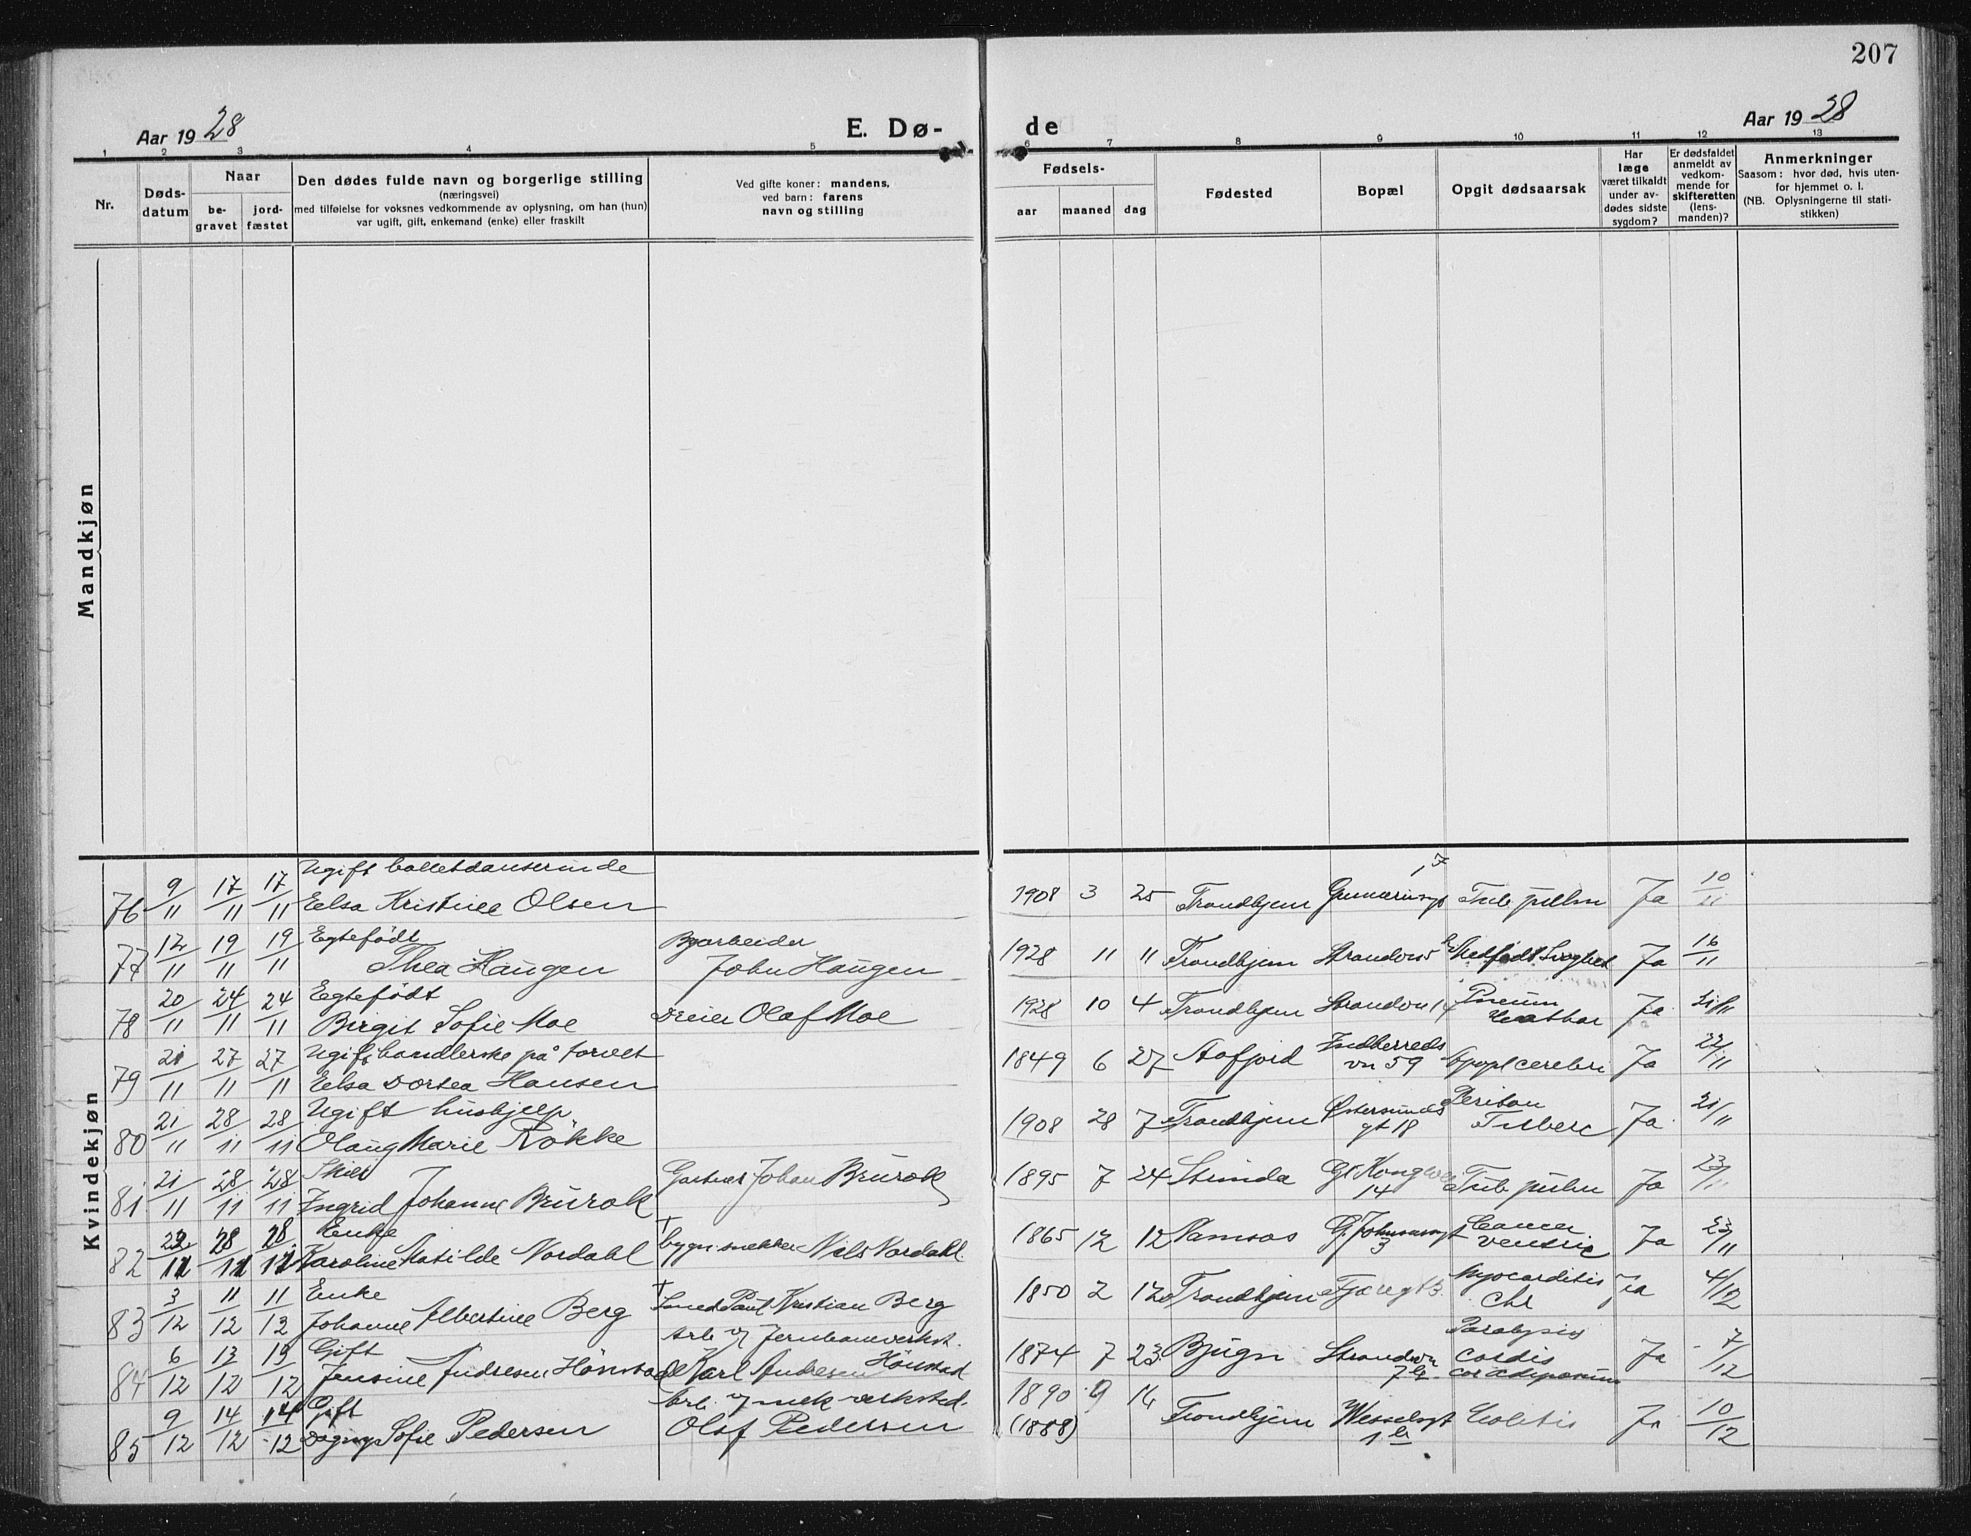 207
Aar 1928
E. Dø-
de
Aar 1928
1 2 3 4 5 6 7 8 9 10 11 12 13
Nr.
Døds-
datum
Naar
be-
gravet
jord-
fæstet
Den dødes fulde navn og borgerlige stilling
(næringsvei)
med tilføielse for voksnes vedkommende av oplysning, om han (hun)
var ugift, gift, enkemand (enke) eller fraskilt
Ved gifte koner: mandens,
ved barn: farens
navn og stilling
Fødsels-
aar maaned dag
Fødested
Bopæl
Opgit dødsaarsak
Har
læge
været tilkaldt
under av-
dødes sidste
sygdom?
Er dødsfaldet
anmeldt av
vedkom-
mende for
skifteretten
(lens-
manden)?
Anmerkninger
Saasom: hvor død, hvis uten-
for hjemmet o. l.
(NB. Oplysningerne til stati-
stikken)
Mandkjøn
Kvindekjøn
Ugift balletdanserinde
76 9/11 17/11 17/11 Elsa Kristine Olsen 1908 3 25 Trondhjem Tub pulm Ja
Egtefødt Byarbeider
77 12/11 19/11 19/11 Thea Haugen John Haugen 1928 11 11 Trondhjem Medfødt Svaghet Ja 16/11
Egtefødt
78 20/11 24/11 24/11 Birgit Sofie Moe Dreier Olaf Moe 1928 10 4 Trondhjem Strandvn 14 Pneum Ja 21/11
Ugift, handlerske på torvet
79 21/11 27/11 27/11 Elsa Dortea Hansen 1849 6 27 Aafjord Indherreds
vn 59 Apopl cerebri Ja 22/11
Ugift hushjelp
80 21/11 28/11 28/11 Olaug Marie Røkke 1908 28 7 Trondhjem Østersunds
gt 18 Periton
Tuberc Ja 21/11
Skilt
81 21/11 28/11 28/11 Ingrid Johanne Brurok Gartner Johan Brurok 1895 7 24 Strinda Gl Kongevei
14 Tub pulm Ja 23/11
Enke
82 22/11 28/11 28/11 Karoline Matilde Nordahl † bygn.snekker Nils Nordahl 1865 12 12 Namsos
3 Cancer
ventric Ja 23/11
Enke
83 3/12 11/12 11/12 Johanne Albertine Berg † Smed Paul Kristian Berg 1850 2 12 Trondhjem Fjæregt 3 Myocarditis
chr Ja 4/12
Gift Arb. v/ Jernbaneverkst.
84 6/12 13/12 13/12 Jensine Andresen Hönstad Karl Andresen Hönstad 1874 7 23 Bjugn Strandvn
7 b Paralysis
cordis
cor adiposum Ja 7/12
Gift Arb. v/ mek verksted.
85 9/12 14/12 14/12 Dagny Sofie Pedersen Olaf Pedersen 1890 9 16
(1888) Trondhjem Wesselsgt
1 b Colitis Ja 10/12